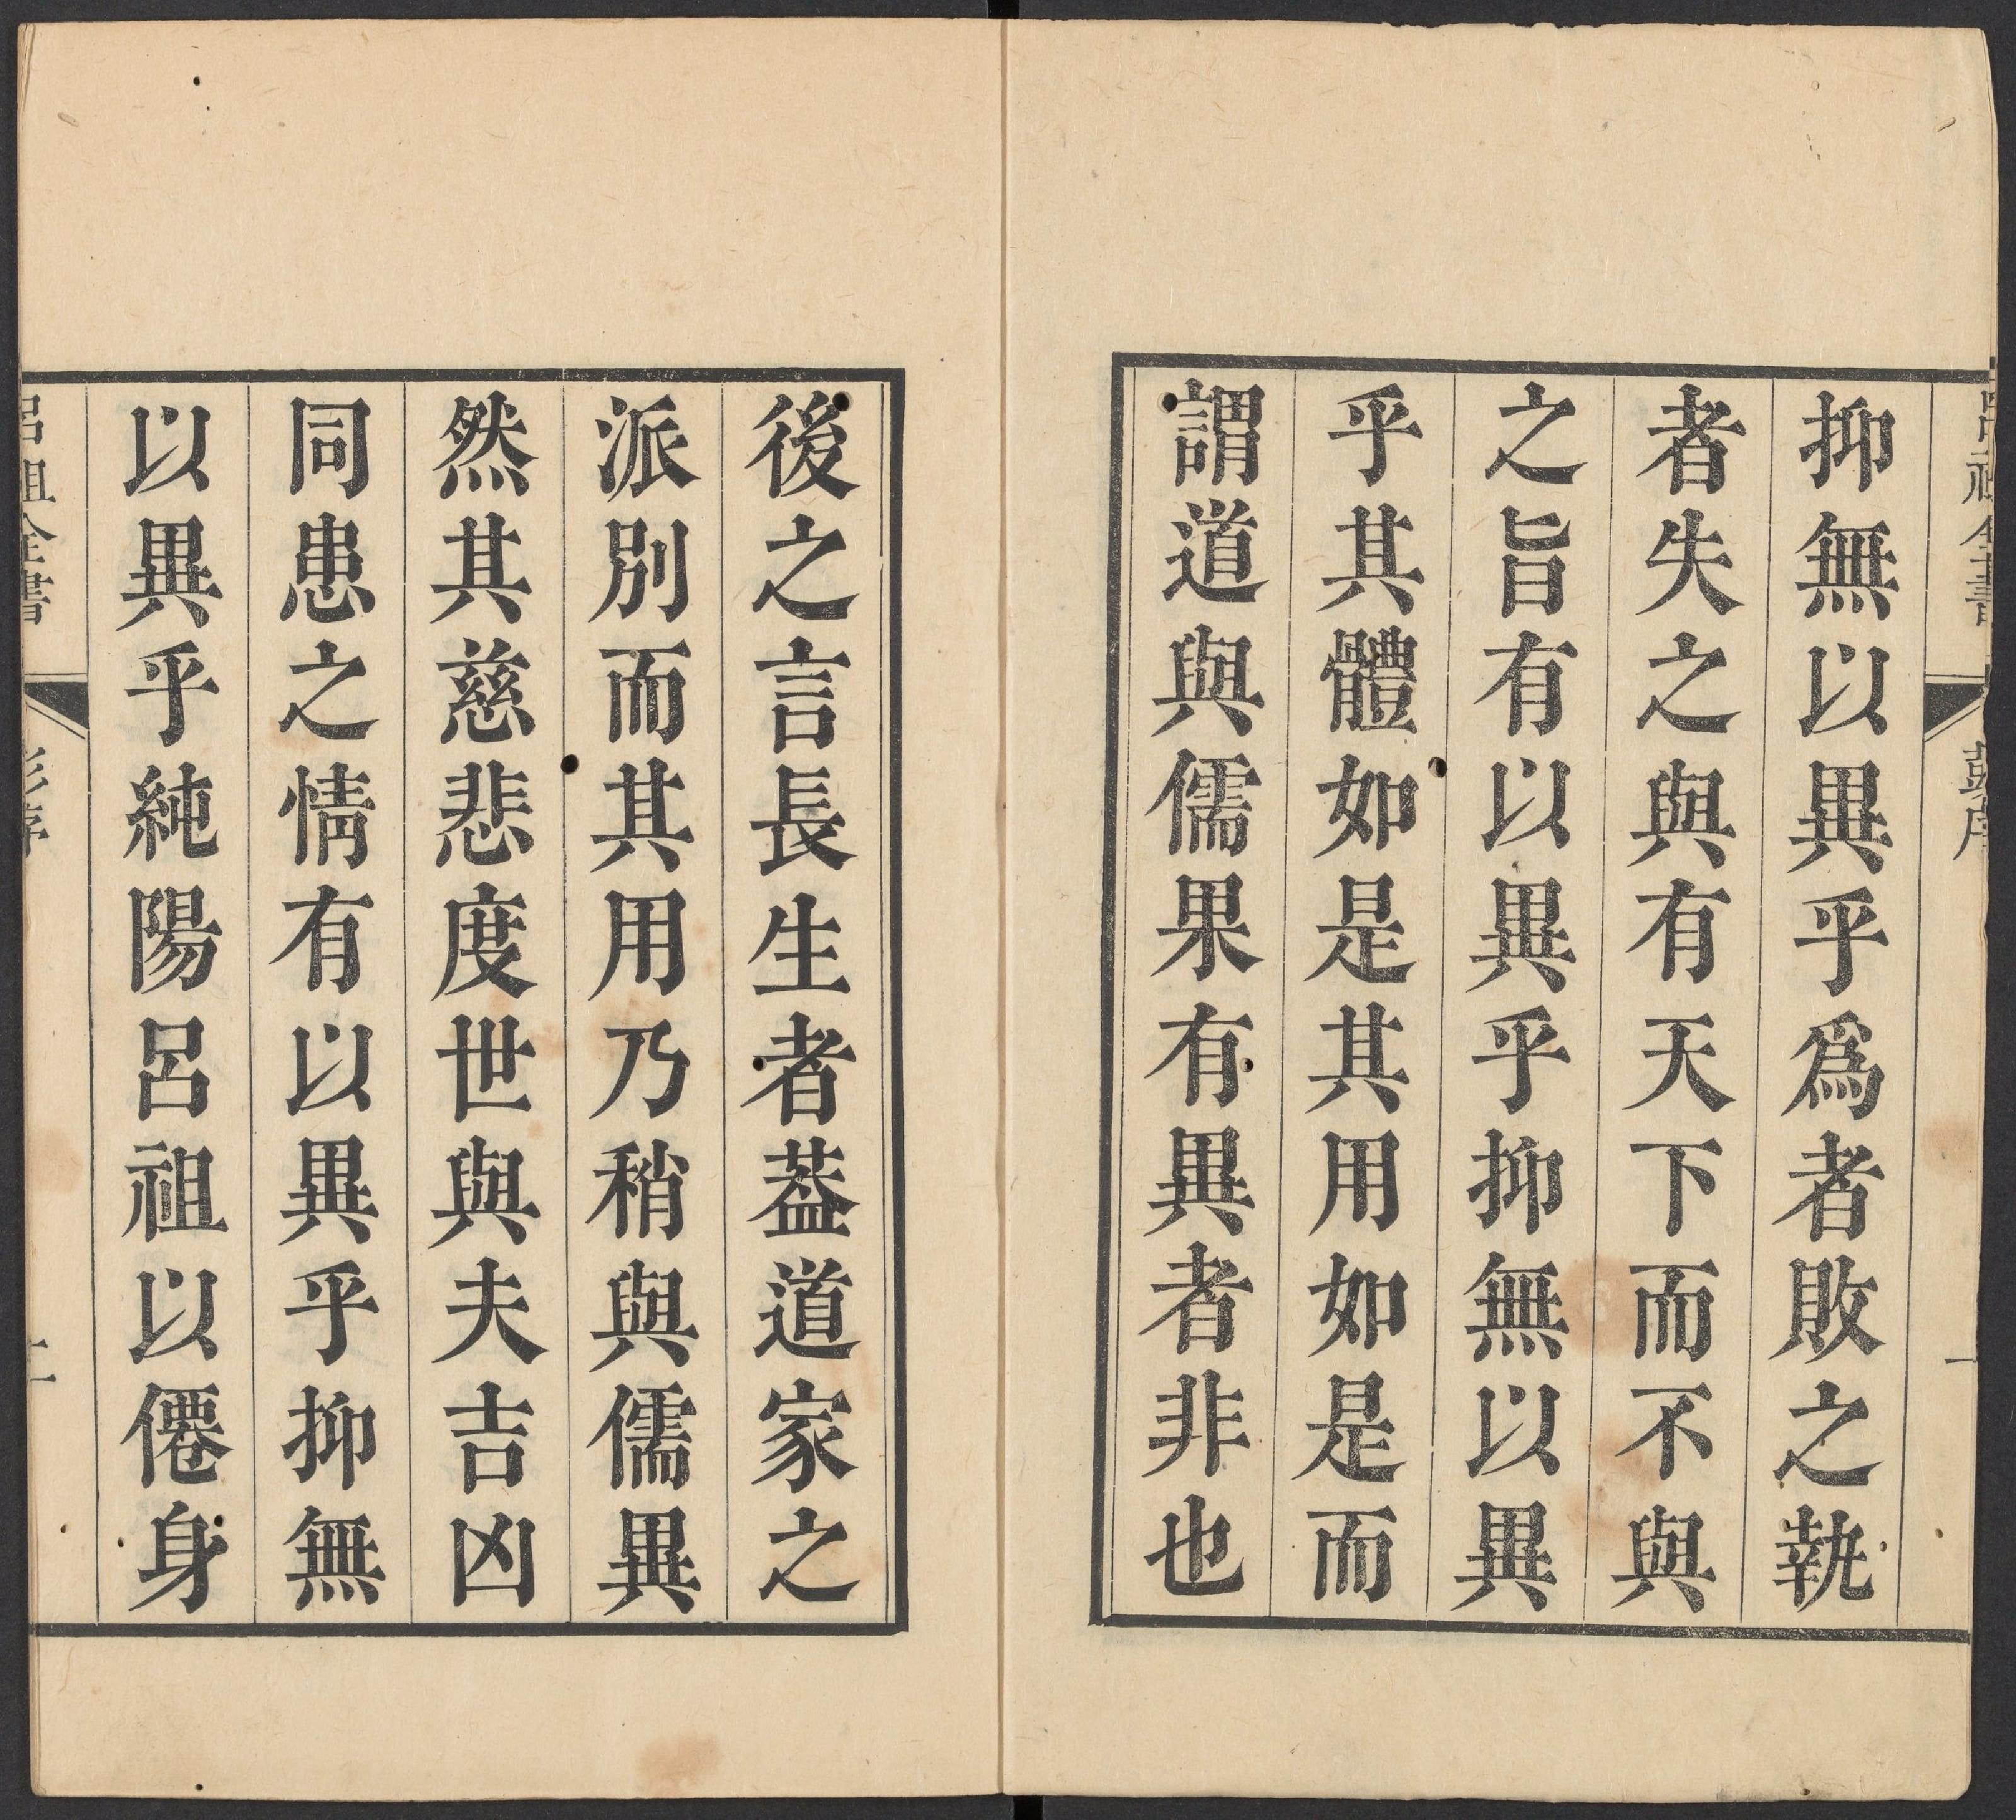 呂祖全書 彭序 一
抑無以異乎爲者敗之執
者失之與有天下而不與
之旨有以異乎抑無以異
乎其體如是其用如是而
謂道與儒果有異者非也
後之言長生者葢道家之
派別而其用乃稍與儒異
然其慈悲度世與夫吉凶
同患之情有以異乎抑無
以異乎純陽呂祖以僊身
呂祖全書 彭序 二